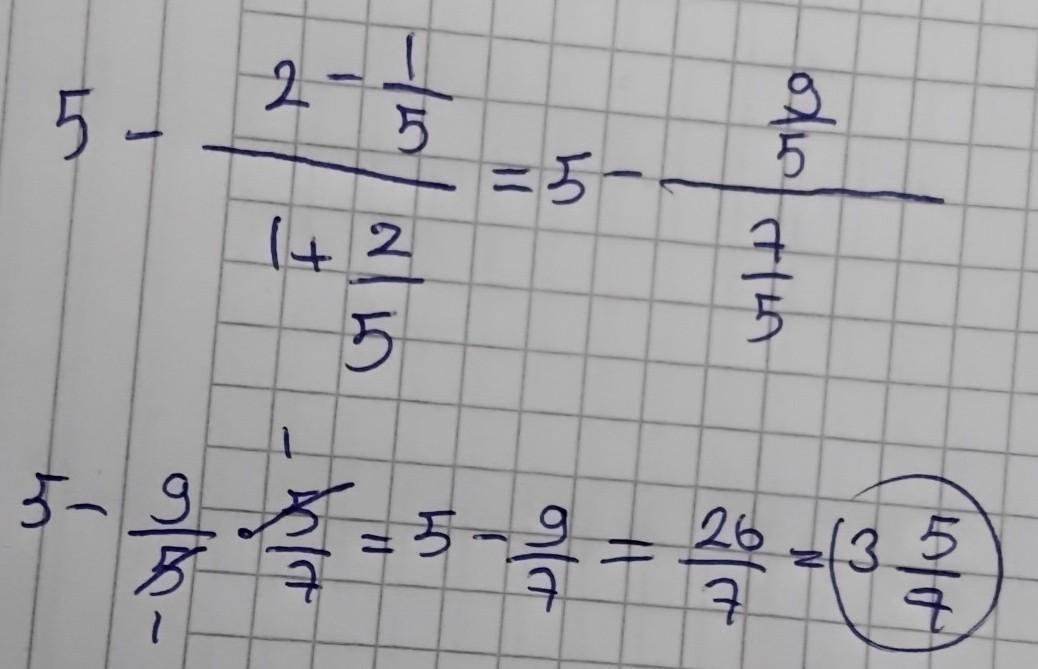 5 - (2 - 1/5)/(1 + 2/5) = 5 - (9/5)/(7/5)
5 - 9/5 · 5/7 = 5 - 9/7 = 26/7 = 3 5/7